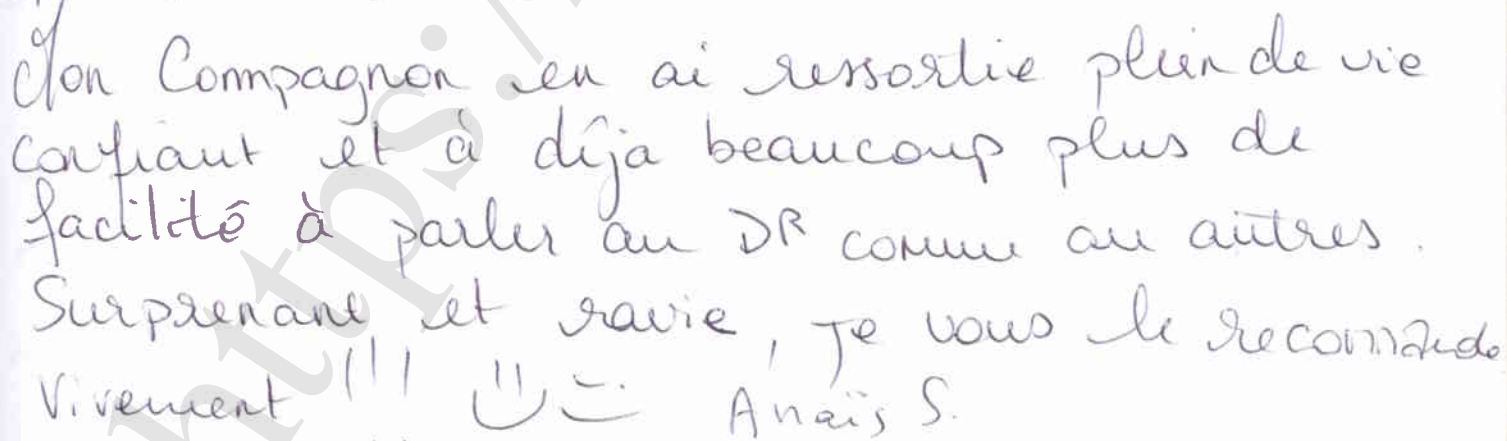 Mon Compagnon en ai ressortie plein de vie
confiant et à déja beaucoup plus de
facilité à parler au DR comme au autres.
Surprenant et ravie, Je vous le recommande
Vivement !!! Anaïs S.
https:/